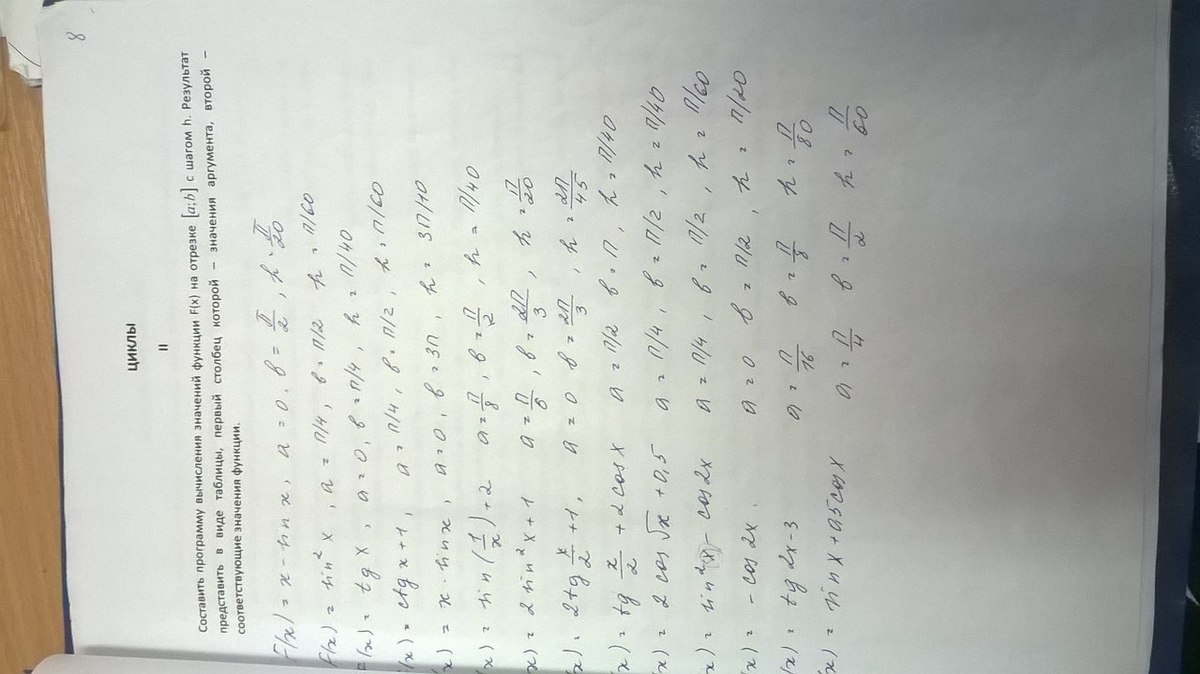 8
ЦИКЛЫ
II
Составить программу вычисления значений функции F(x) на отрезке [a;b] с шагом h. Результат
представить в виде таблицы, первый столбец которой – значения аргумента, второй –
соответствующие значения функции.
F(x) = x - sin x, a = 0, b = π/2, h = π/20
F(x) = sin² x, a = π/4, b = π/2 h = π/60
F(x) = tg x, a = 0, b = π/4, h = π/40
(x) = ctg x + 1, a = π/4, b = π/2, h = π/60
(x) = x · sin x, a = 0, b = 3π, h = 3π/40
x) = sin(1/x) + 2 a = π/8, b = π/2, h = π/40
x) = 2 sin² x + 1 a = π/6, b = 2π/3, h = π/20
x) = 2tg x/2 + 1, a = 0 b = 2π/3, h = 2π/45
x) = tg x/2 + 2 cos x a = π/2 b = π, h = π/40
x) = 2 cos √x + 0,5 a = π/4, b = π/2, h = π/40
x) = sin² x - cos 2x a = π/4, b = π/2, h = π/60
x) = - cos 2x. a = 0 b = π/2, h = π/20
(x) = tg 2x - 3 a = π/16 b = π/8 h = π/80
x) = sin x + 0,5 cos x a = π/4 b = π/2 h = π/60